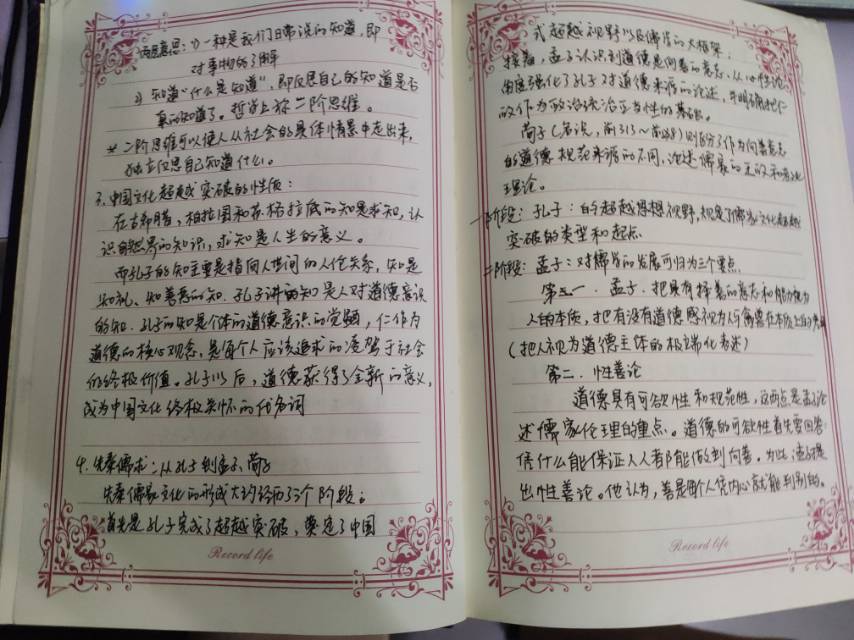 两层意思：1) 一种是我们日常说的知道，即
对事物的了解
2) 知道"什么是知道"，即反思自己的知道是否
真的知道了。哲学上称二阶思维。
* 二阶思维可以使人从社会的具体情景中走出来，
独立反思自己知道什么。
3. 中国文化超越突破的性质：
在古希腊，柏拉图和苏格拉底的知是求知，认
识自然界的知识，求知是人生的意义。
而孔子的知主要是指向人世间的人伦关系，知是
知礼、知善恶的知。孔子讲的知是人对道德意识
的知。孔子的知是个体的道德意识的觉醒，仁作为
道德的核心观念，是每个人应该追求的凌驾于社会
的终极价值。孔子以后，道德获得了全新的意义，
成为中国文化终极关怀的代名词
4. 先秦儒术：从孔子到孟子、荀子
先秦儒家文化的形成大约经历了三个阶段：
首先是孔子完成了超越突破，奠定了中国
式超越视野以及儒学的大框架；
接着，孟子认识到道德是向善的意志，从心性论
角度强化了孔子对道德来源的论述，并明确把仁
政作为政治统治正当性的基础。
荀子（名况，前313～前238）则区分了作为向善意志
的道德规范来源的不同，论述儒家的王政和
理论。
一阶段：孔子：的超越思想视野，规定了儒家文化超越
突破的类型和起点
二阶段：孟子：对儒学的发展可归为三个要点
第一. 孟子. 把具有择善的意志和能力视为
人的本质，把有没有道德感视为人与禽兽在本质上的
（把人视为道德主体的极端化表述）
第二. 性善论
道德具有可欲性和规范性，这两点是孟子论
述儒家伦理的重点。道德的可欲性首先要回答
凭什么能保证人人都能做到向善。为此孟子提
出性善论。他认为，善是每个人凭内心就能判别的。
Record life
Record life